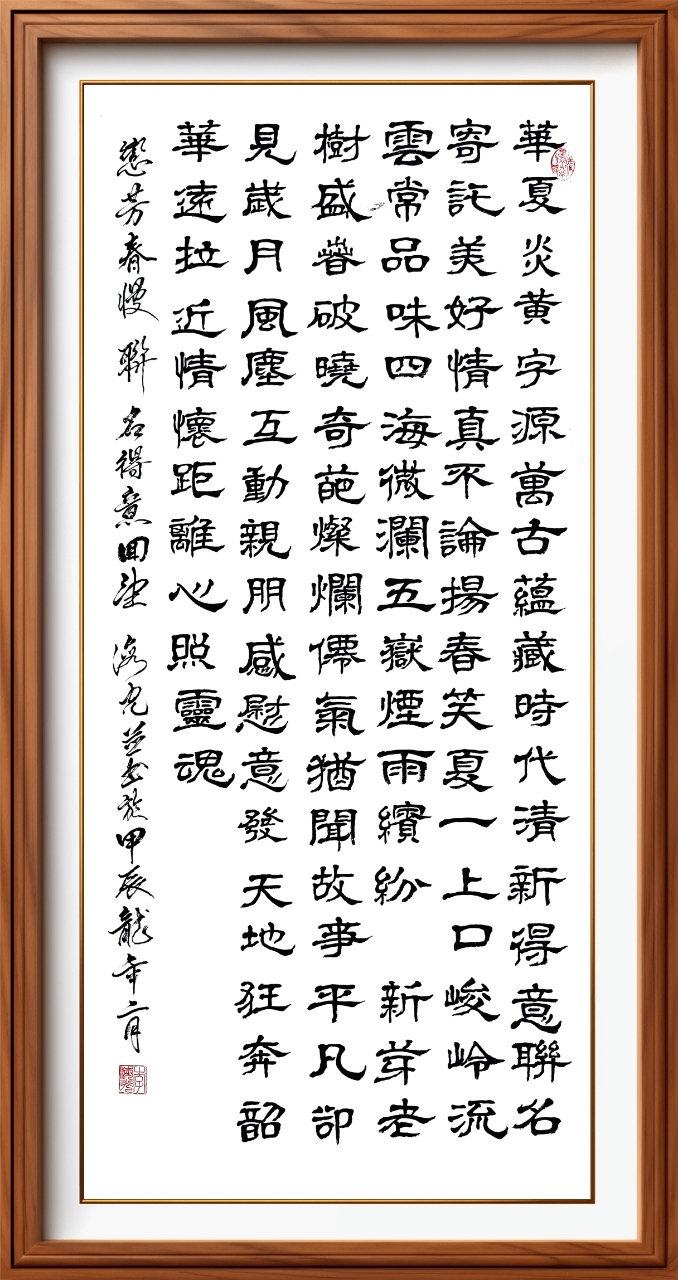 華夏炎黄字源萬古蘊藏時代清新得意聯名
寄託美好情真不論揚春笑夏一上口峻岭流
雲常品味四海微瀾五嶽煙雨繽紛新芽老
樹盛蕾破曉奇葩燦爛儒氣猶聞故事平凡卻
見歲月風塵互動親朋感慰意發天地狂奔韶
華遠拉近情懷距離心照靈魂
戀芳春慢 聯名得意回望 海九並书於甲辰龍年二月